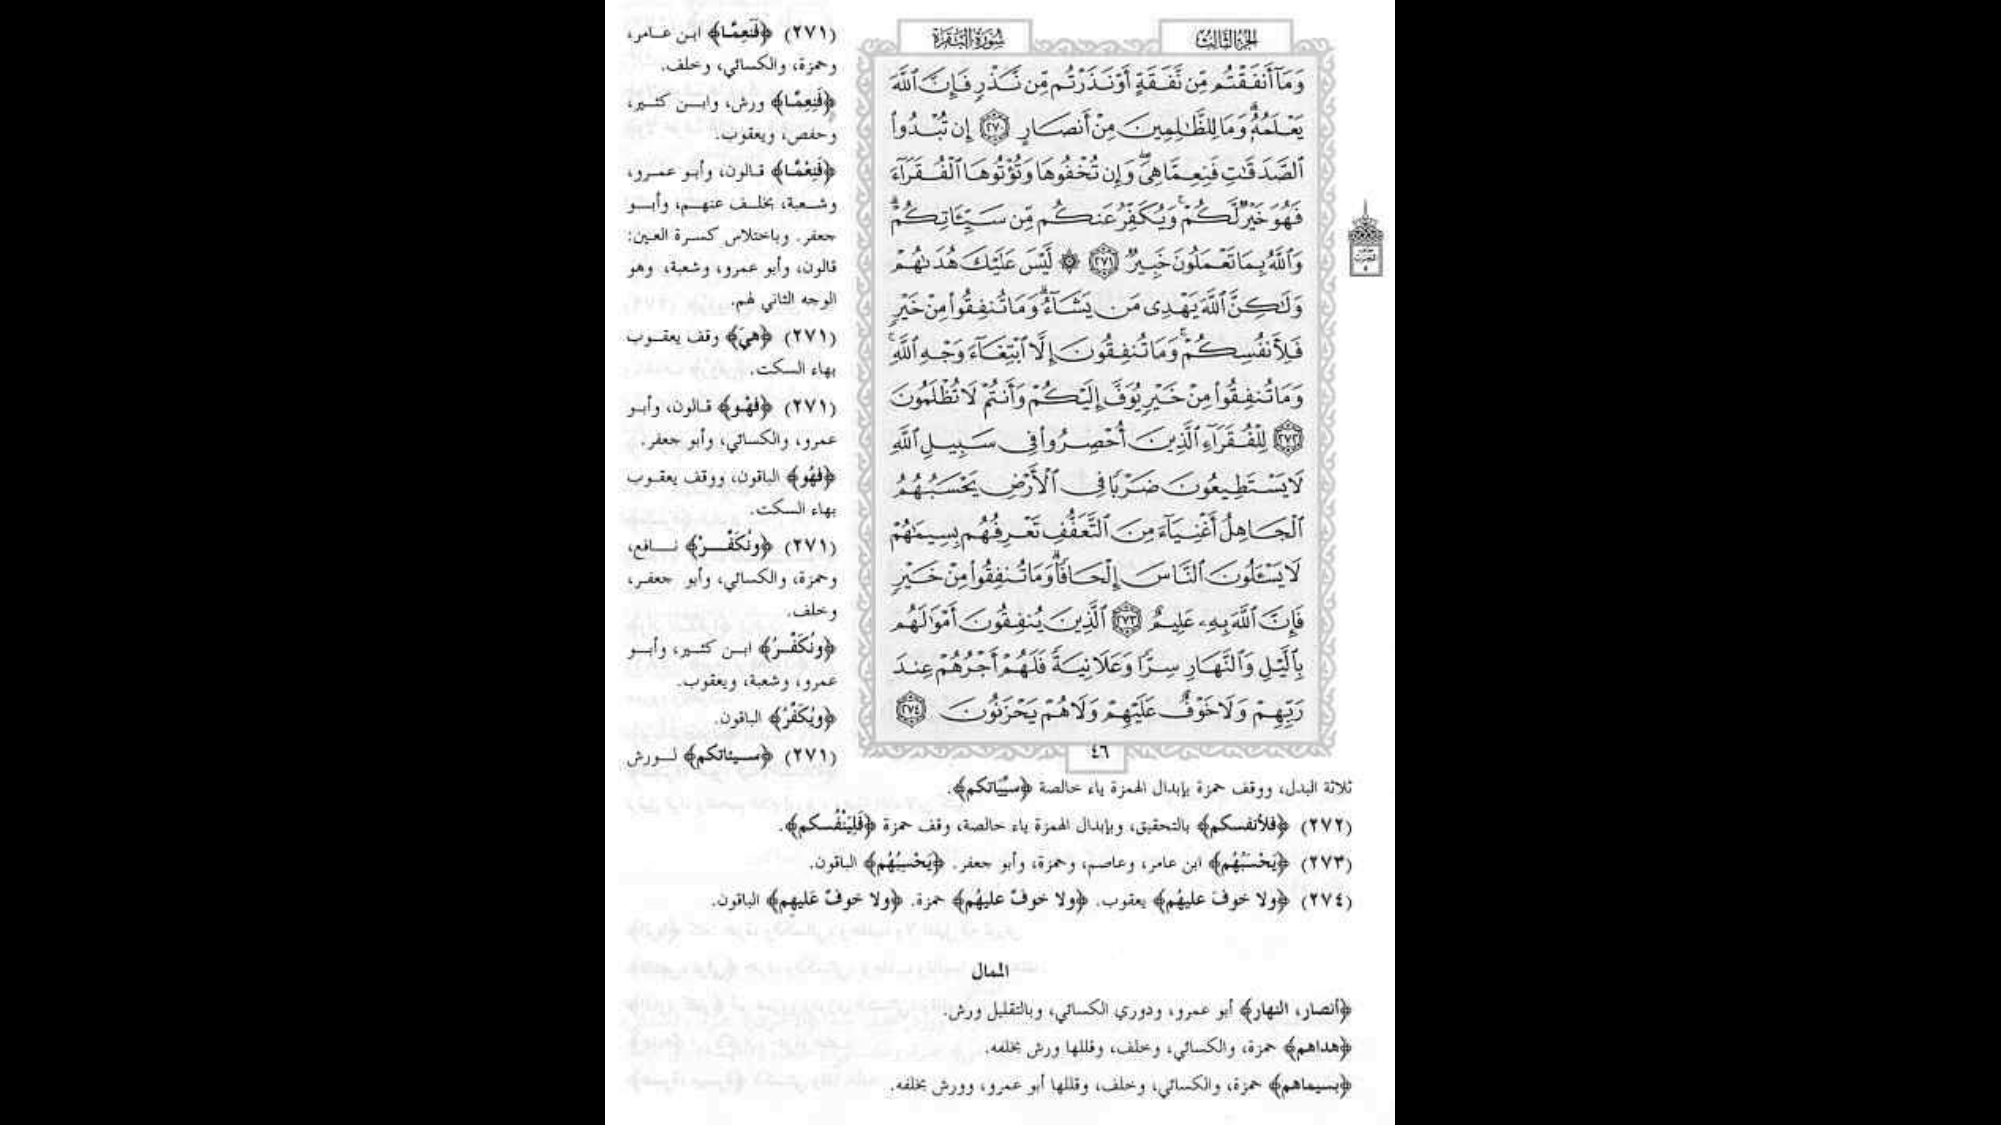 الجزء الثالث
سورة البقرة
وَمَآ أَنفَقْتُم مِّن نَّفَقَةٍ أَوْ نَذَرْتُم مِّن نَّذْرٍ فَإِنَّ ٱللَّهَ
يَعْلَمُهُۥ ۗ وَمَا لِلظَّـٰلِمِينَ مِنْ أَنصَارٍ ٢٧٠ إِن تُبْدُوا۟
ٱلصَّدَقَـٰتِ فَنِعِمَّا هِىَ ۖ وَإِن تُخْفُوهَا وَتُؤْتُوهَا ٱلْفُقَرَآءَ
فَهُوَ خَيْرٌ لَّكُمْ ۚ وَيُكَفِّرُ عَنكُم مِّن سَيِّـَٔاتِكُمْ ۗ
وَٱللَّهُ بِمَا تَعْمَلُونَ خَبِيرٌ ٢٧١ ۞ لَّيْسَ عَلَيْكَ هُدَىٰهُمْ
وَلَـٰكِنَّ ٱللَّهَ يَهْدِى مَن يَشَآءُ ۗ وَمَا تُنفِقُوا۟ مِنْ خَيْرٍ
فَلِأَنفُسِكُمْ ۚ وَمَا تُنفِقُونَ إِلَّا ٱبْتِغَآءَ وَجْهِ ٱللَّهِ ۚ
وَمَا تُنفِقُوا۟ مِنْ خَيْرٍ يُوَفَّ إِلَيْكُمْ وَأَنتُمْ لَا تُظْلَمُونَ
٢٧٢ لِلْفُقَرَآءِ ٱلَّذِينَ أُحْصِرُوا۟ فِى سَبِيلِ ٱللَّهِ
لَا يَسْتَطِيعُونَ ضَرْبًا فِى ٱلْأَرْضِ يَحْسَبُهُمُ
ٱلْجَاهِلُ أَغْنِيَآءَ مِنَ ٱلتَّعَفُّفِ تَعْرِفُهُم بِسِيمَـٰهُمْ
لَا يَسْـَٔلُونَ ٱلنَّاسَ إِلْحَافًا ۗ وَمَا تُنفِقُوا۟ مِنْ خَيْرٍ
فَإِنَّ ٱللَّهَ بِهِۦ عَلِيمٌ ٢٧٣ ٱلَّذِينَ يُنفِقُونَ أَمْوَٰلَهُم
بِٱلَّيْلِ وَٱلنَّهَارِ سِرًّا وَعَلَانِيَةً فَلَهُمْ أَجْرُهُمْ عِندَ
رَبِّهِمْ وَلَا خَوْفٌ عَلَيْهِمْ وَلَا هُمْ يَحْزَنُونَ ٢٧٤
٤٦
(٢٧١) ﴿فَنَعِمَّا﴾ ابن عامر،
وحمزة، والكسائي، وخلف.
﴿فَنِعِمَّا﴾ ورش، وابن كثير،
وحفص، ويعقوب.
﴿فَنِعْمَّا﴾ قالون، وأبو عمرو،
وشعبة، بخلف عنهم، وأبو
جعفر. وباختلاس كسرة العين:
قالون، وأبو عمرو، وشعبة، وهو
الوجه الثاني لهم.
(٢٧١) ﴿هيَ﴾ وقف يعقوب
بهاء السكت.
(٢٧١) ﴿فَهْو﴾ قالون، وأبو
عمرو، والكسائي، وأبو جعفر.
﴿فَهُو﴾ الباقون، ووقف يعقوب
بهاء السكت.
(٢٧١) ﴿ونُكَفِّرْ﴾ نافع،
وحمزة، والكسائي، وأبو جعفر،
وخلف.
﴿ونُكَفِّرُ﴾ ابن كثير، وأبو
عمرو، وشعبة، ويعقوب.
﴿ويُكَفِّرُ﴾ الباقون.
(٢٧١) ﴿سيئاتكم﴾ لورش
ثلاثة البدل، ووقف حمزة بإبدال الهمزة ياء خالصة ﴿سيِّيَاتكم﴾.
(٢٧٢) ﴿فلأنفسكم﴾ بالتحقيق، وبإبدال الهمزة ياء خالصة، وقف حمزة ﴿فَلِيَنْفُسكم﴾.
(٢٧٣) ﴿يَحْسَبُهُم﴾ ابن عامر، وعاصم، وحمزة، وأبو جعفر. ﴿يَحْسِبُهُم﴾ الباقون.
(٢٧٤) ﴿ولا خوفَ عليهُم﴾ يعقوب. ﴿ولا خوفٌ عليهُم﴾ حمزة. ﴿ولا خوفٌ عَليهِم﴾ الباقون.
الممال
﴿أنصار، النهار﴾ أبو عمرو، ودوري الكسائي، وبالتقليل ورش.
﴿هداهم﴾ حمزة، والكسائي، وخلف، وقللها ورش بخلفه.
﴿بسيماهم﴾ حمزة، والكسائي، وخلف، وقللها أبو عمرو، وورش بخلفه.